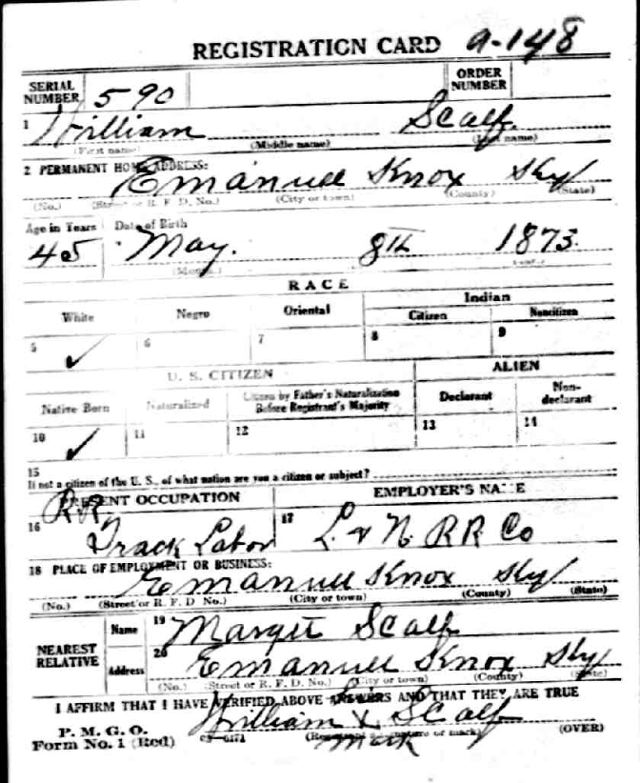 REGISTRATION CARD a-148
SERIAL NUMBER 590 ORDER NUMBER
1 William Scalf
(First name) (Middle name) (Last name)
2 PERMANENT HOME ADDRESS:
Emanuel Knox Ky
(No.) (Street or R. F. D. No.) (City or town) (County) (State)
Age in Years Date of Birth
45 May. 8th 1873
(Month.)
RACE
White Negro Oriental Indian
Citizen Noncitizen
5 ✓ 6 7 8 9
U. S. CITIZEN ALIEN
Native Born Naturalized Citizen by Father's Naturalization Before Registrant's Majority Declarant Non-declarant
10 ✓ 11 12 13 14
15
If not a citizen of the U. S., of what nation are you a citizen or subject?
PRESENT OCCUPATION EMPLOYER'S NAME
16 R.R. Track Labor 17 L & N. R.R. Co
18 PLACE OF EMPLOYMENT OR BUSINESS:
Emanuel Knox Ky
(No.) (Street or R. F. D. No.) (City or town) (County) (State)
NEAREST RELATIVE
Name 19 Margit Scalf
Address 20 Emanuel Knox Ky
(No.) (Street or R. F. D. No.) (City or town) (County) (State)
I AFFIRM THAT I HAVE VERIFIED ABOVE ANSWERS AND THAT THEY ARE TRUE
P. M. G. O.
Form No. 1 (Red)
William x Scalf
mark
(Registrant's signature or mark) (OVER)